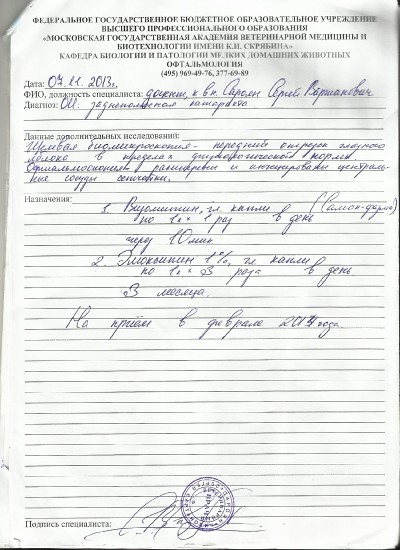 ФЕДЕРАЛЬНОЕ ГОСУДАРСТВЕННОЕ БЮДЖЕТНОЕ ОБРАЗОВАТЕЛЬНОЕ УЧРЕЖДЕНИЕ
ВЫСШЕГО ПРОФЕССИОНАЛЬНОГО ОБРАЗОВАНИЯ
«МОСКОВСКАЯ ГОСУДАРСТВЕННАЯ АКАДЕМИЯ ВЕТЕРИНАРНОЙ МЕДИЦИНЫ И
БИОТЕХНОЛОГИИ ИМЕНИ К.И. СКРЯБИНА»
КАФЕДРА БИОЛОГИИ И ПАТОЛОГИИ МЕЛКИХ ДОМАШНИХ ЖИВОТНЫХ
ОФТАЛЬМОЛОГИЯ
(495) 969-49-76, 377-69-89
Дата: 07.11.2013г.
ФИО, должность специалиста: доцент, к.в.н. Сароян Сергей Варшанович
Диагноз: OU: заднеполюсная катаракта
Данные дополнительных исследований:
Щелевая биомикроскопия - передний отрезок глазного
яблока в пределах физиологической нормы.
Офтальмоскопия: расширены и инъецированы централь-
ные сосуды сетчатки.
Назначения:
1. Визомитин, гл. капли (Самсон-фарма)
по 1к × 1 раз в день
через 10 мин
2. Эмоксипин 1%, гл. капли
по 1к × 3 раза в день
3 месяца.
На приём в феврале 2014 года.
Подпись специалиста: